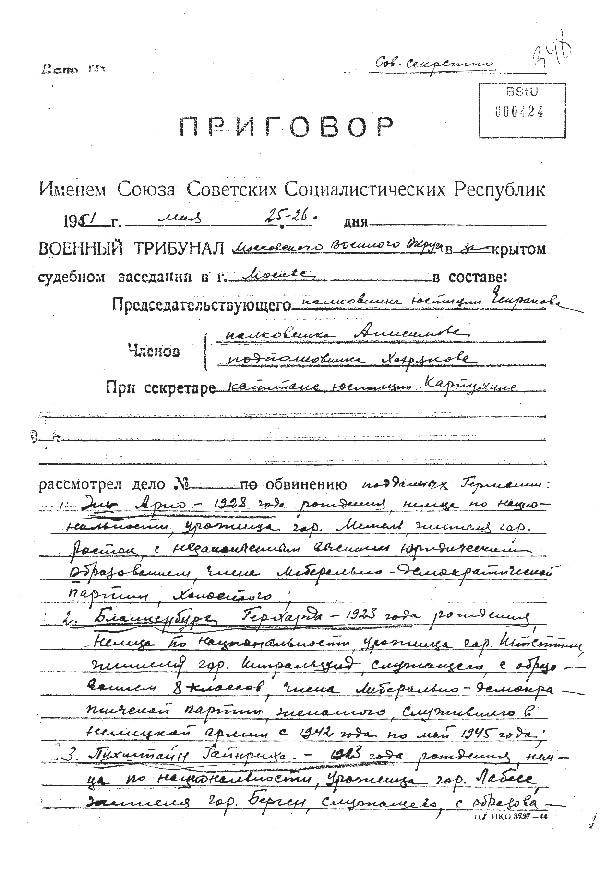 Сов. секретно
BStU
000424
ПРИГОВОР
Именем Союза Советских Социалистических Республик
1951 г. мая 25-26. дня
ВОЕННЫЙ ТРИБУНАЛ Московского Военного Округа в закрытом
судебном заседании в г. Москве в составе:
Председательствующего полковника юстиции
Членов полковника Анисимова
подполковника Хотякове
При секретаре капитане юстиции Карпухине
рассмотрел дело № по обвинению подданных Германии:
1. Эш Арно – 1928 года рождения, немца по нацио-
нальности, уроженца гор. Мемель, жителя гор.
Росток, с незаконченным высшим юридическим
образованием, члена Либерально-демократической
партии, холостого;
2. Бланкенбург Герхарда – 1923 года рождения,
немца по национальности, уроженца гор. Штеттин,
жителя гор. Штральзунд, служащего, с образо-
ванием 8 классов, члена Либерально-демокра-
тической партии, женатого, служившего в
немецкой армии с 1942 года по май 1945 года;
3. Пухштайн Гайнриха. – 1923 года рождения, нем-
ца по национальности, уроженца гор. Лабес,
жителя гор. Берген, служащего, с образова-